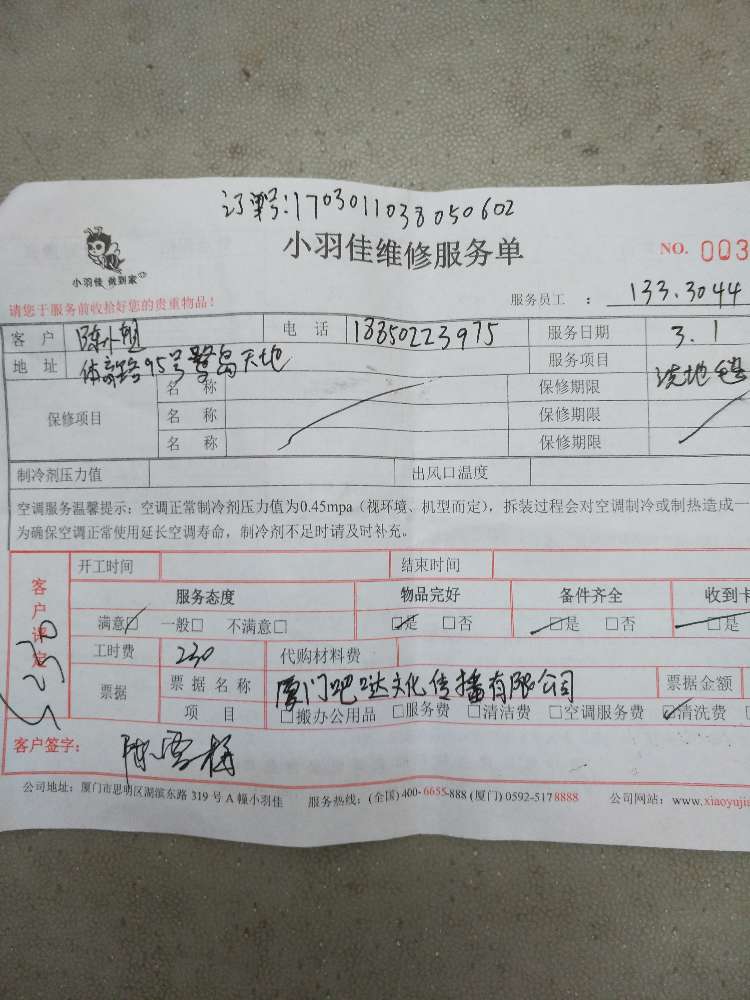 订单号:1703011038050602
小羽佳维修服务单
NO. 003
小羽佳 做到家
请您于服务前收拾好您的贵重物品!
服务员工 : 133.3044
客 户 陈小姐 电 话 18350223975 服务日期 3.1
地 址 体育路95号鹭岛天地 服务项目 洗地毯
保修项目 名 称 保修期限
名 称 保修期限
名 称 保修期限
制冷剂压力值 出风口温度
空调服务温馨提示:空调正常制冷剂压力值为0.45mpa(视环境、机型而定),拆装过程会对空调制冷或制热造成一
为确保空调正常使用延长空调寿命,制冷剂不足时请及时补充。
客户评定
开工时间 结束时间
服务态度 物品完好 备件齐全 收到卡
满意□ 一般□ 不满意□ □是 □否 □是 □否 □是
工时费 230 代购材料费
票据 票据名称 厦门吧哒文化传播有限公司 票据金额
项 目 □搬办公用品 □服务费 □清洁费 □空调服务费 □清洗费
客户签字: 陈雪梅
公司地址:厦门市思明区湖滨东路 319 号 A 幢小羽佳 服务热线:(全国)400-6655-888 (厦门) 0592-5178888 公司网站:www.xiaoyujis